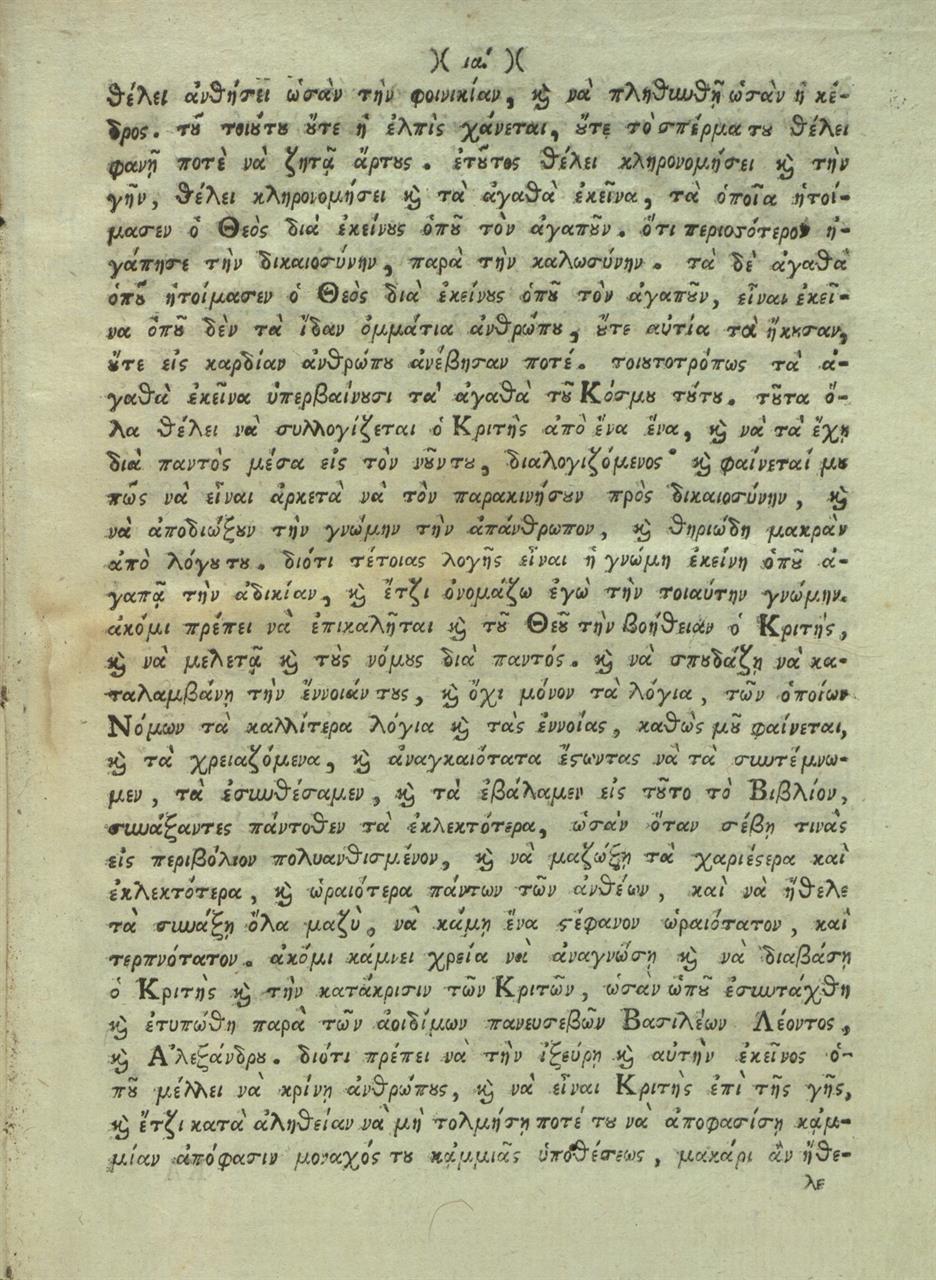 )( ια'. )(
θέλει ἀνθήσει ὡσὰν τὴν φοινικίαν, ϗ νὰ πληθυνθῇ ὡσὰν ἡ κέ-
δρος. τȣ͂ τοιȣ́τȣ ȣ̓́τε ἡ ἐλπὶς χάνεται, ȣ̓́τε τὸ σπέρμα τȣ θέλει
φανῇ ποτὲ νὰ ζητᾷ ἄρτȣς. ἐτȣ͂τος θέλει κληρονομήσει ϗ τὴν
γῆν, θέλει κληρονομήσει ϗ τὰ ἀγαθὰ ἐκεῖνα, τὰ ὁποῖα ἡτοί-
μασεν ὁ Θεὸς διὰ ἐκείνȣς ὁπȣ͂ τὸν ἀγαπȣ͂ν. ὅτι περιοϛότερον ἠ-
γάπησε τὴν δικαιοσύνην, παρὰ τὴν καλωσύνην. τὰ δὲ ἀγαθὰ
ὁπȣ͂ ἡτοίμασεν ὁ Θεὸς διὰ ἐκείνȣς ὁπȣ͂ τὸν ἀγαπȣ͂ν, εἶναι ἐκεῖ-
να ὁπȣ͂ δὲν τὰ ἴδαν ὀμμάτια ἀνθρώπȣ, ȣ̓́τε αὐτία τὰ ἤκȣσαν,
ȣ̓́τε εἰς καρδίαν ἀνθρώπȣ ἀνέβησαν ποτέ. τοιȣτοτρόπως τὰ ἀ-
γαθὰ ἐκεῖνα ὑπερβαίνȣσι τὰ ἀγαθὰ τȣ͂ Κόσμȣ τȣ́τȣ. τȣ͂τα ὅ-
λα θέλει νὰ συλλογίζεται ὁ Κριτὴς ἀπὸ ἕνα ἕνα, ϗ νὰ τὰ ἔχῃ
διὰ παντὸς μέσα εἰς τὸν νȣ͂ν τȣ, διαλογιζόμενος· ϗ φαίνεταί μȣ
πῶς νὰ εἶναι ἀρκετὰ νὰ τὸν παρακινήσȣν πρὸς δικαιοσύνην, ϗ
νὰ ἀποδιώξȣν τὴν γνώμην τὴν ἀπάνθρωπον, ϗ θηριώδη μακρὰν
ἀπὸ λόγȣ τȣ. διότι τέτοιας λογῆς εἶναι ἡ γνώμη ἐκείνη ὁπȣ͂ ἀ-
γαπᾷ τὴν ἀδικίαν, ϗ ἔτζι ὀνομάζω ἐγὼ τὴν τοιαύτην γνώμην.
ἀκόμι πρέπει νὰ ἐπικαλῆται ϗ τȣ͂ Θεȣ͂ τὴν βοήθειαν ὁ Κριτής,
ϗ νὰ μελετᾷ ϗ τȣ̀ς νόμȣς διὰ παντός. ϗ νὰ σπȣδάζῃ νὰ κα-
ταλαμβάνῃ τὴν ἔννοιάν τȣς, ϗ ὄχι μόνον τὰ λόγια, τῶν ὁποίων
Νόμων τὰ καλλίτερα λόγια ϗ τὰς ἐννοίας, καθὼς μȣ͂ φαίνεται,
ϗ τὰ χρειαζόμενα, ϗ ἀναγκαιότατα ἔϛωντας νὰ τὰ συντέμνω-
μεν, τὰ ἐσυνθέσαμεν, ϗ τὰ ἐβάλαμεν εἰς τȣ͂το τὸ Βιβλίον,
συνάξαντες πάντοθεν τὰ ἐκλεκτότερα, ὡσὰν ὅταν σέβῃ τινὰς
εἰς περιβόλιον πολυανθισμένον, ϗ νὰ μαζώξῃ τὰ χαριέϛερα καὶ
ἐκλεκτότερα, ϗ ὡραιότερα πάντων τῶν ἀνθέων, καὶ νὰ ἤθελε
τὰ συνάξῃ ὅλα μαζὺ, νὰ κάμῃ ἕνα ϛέφανον ὡραιότατον, καὶ
τερπνότατον. ἀκόμι κάμνει χρεία νὰ ἀναγνώσῃ ϗ νὰ διαβάσῃ
ὁ Κριτὴς ϗ τὴν κατάκρισιν τῶν Κριτῶν, ὡσὰν ὡπȣ͂ ἐσυντάχθη
ϗ ἐτυπώθη παρὰ τῶν ἀοιδίμων πανευσεβῶν Βασιλέων Λέοντος,
ϗ Ἀλεξάνδρȣ. διότι πρέπει νὰ τὴν ἰξεύρῃ ϗ αὐτὴν ἐκεῖνος ὁ-
πȣ͂ μέλλει νὰ κρίνῃ ἀνθρώπȣς, ϗ νὰ εἶναι Κριτὴς ἐπὶ τῆς γῆς,
ϗ ἔτζι κατὰ ἀλήθειαν νὰ μὴ τολμήσῃ ποτέ τȣ νὰ ἀποφασίσῃ κἀμ-
μίαν ἀπόφασιν μοναχός τȣ κἀμμιᾶς ὑποθέσεως, μακάρι ἂν ἤθε-
λε